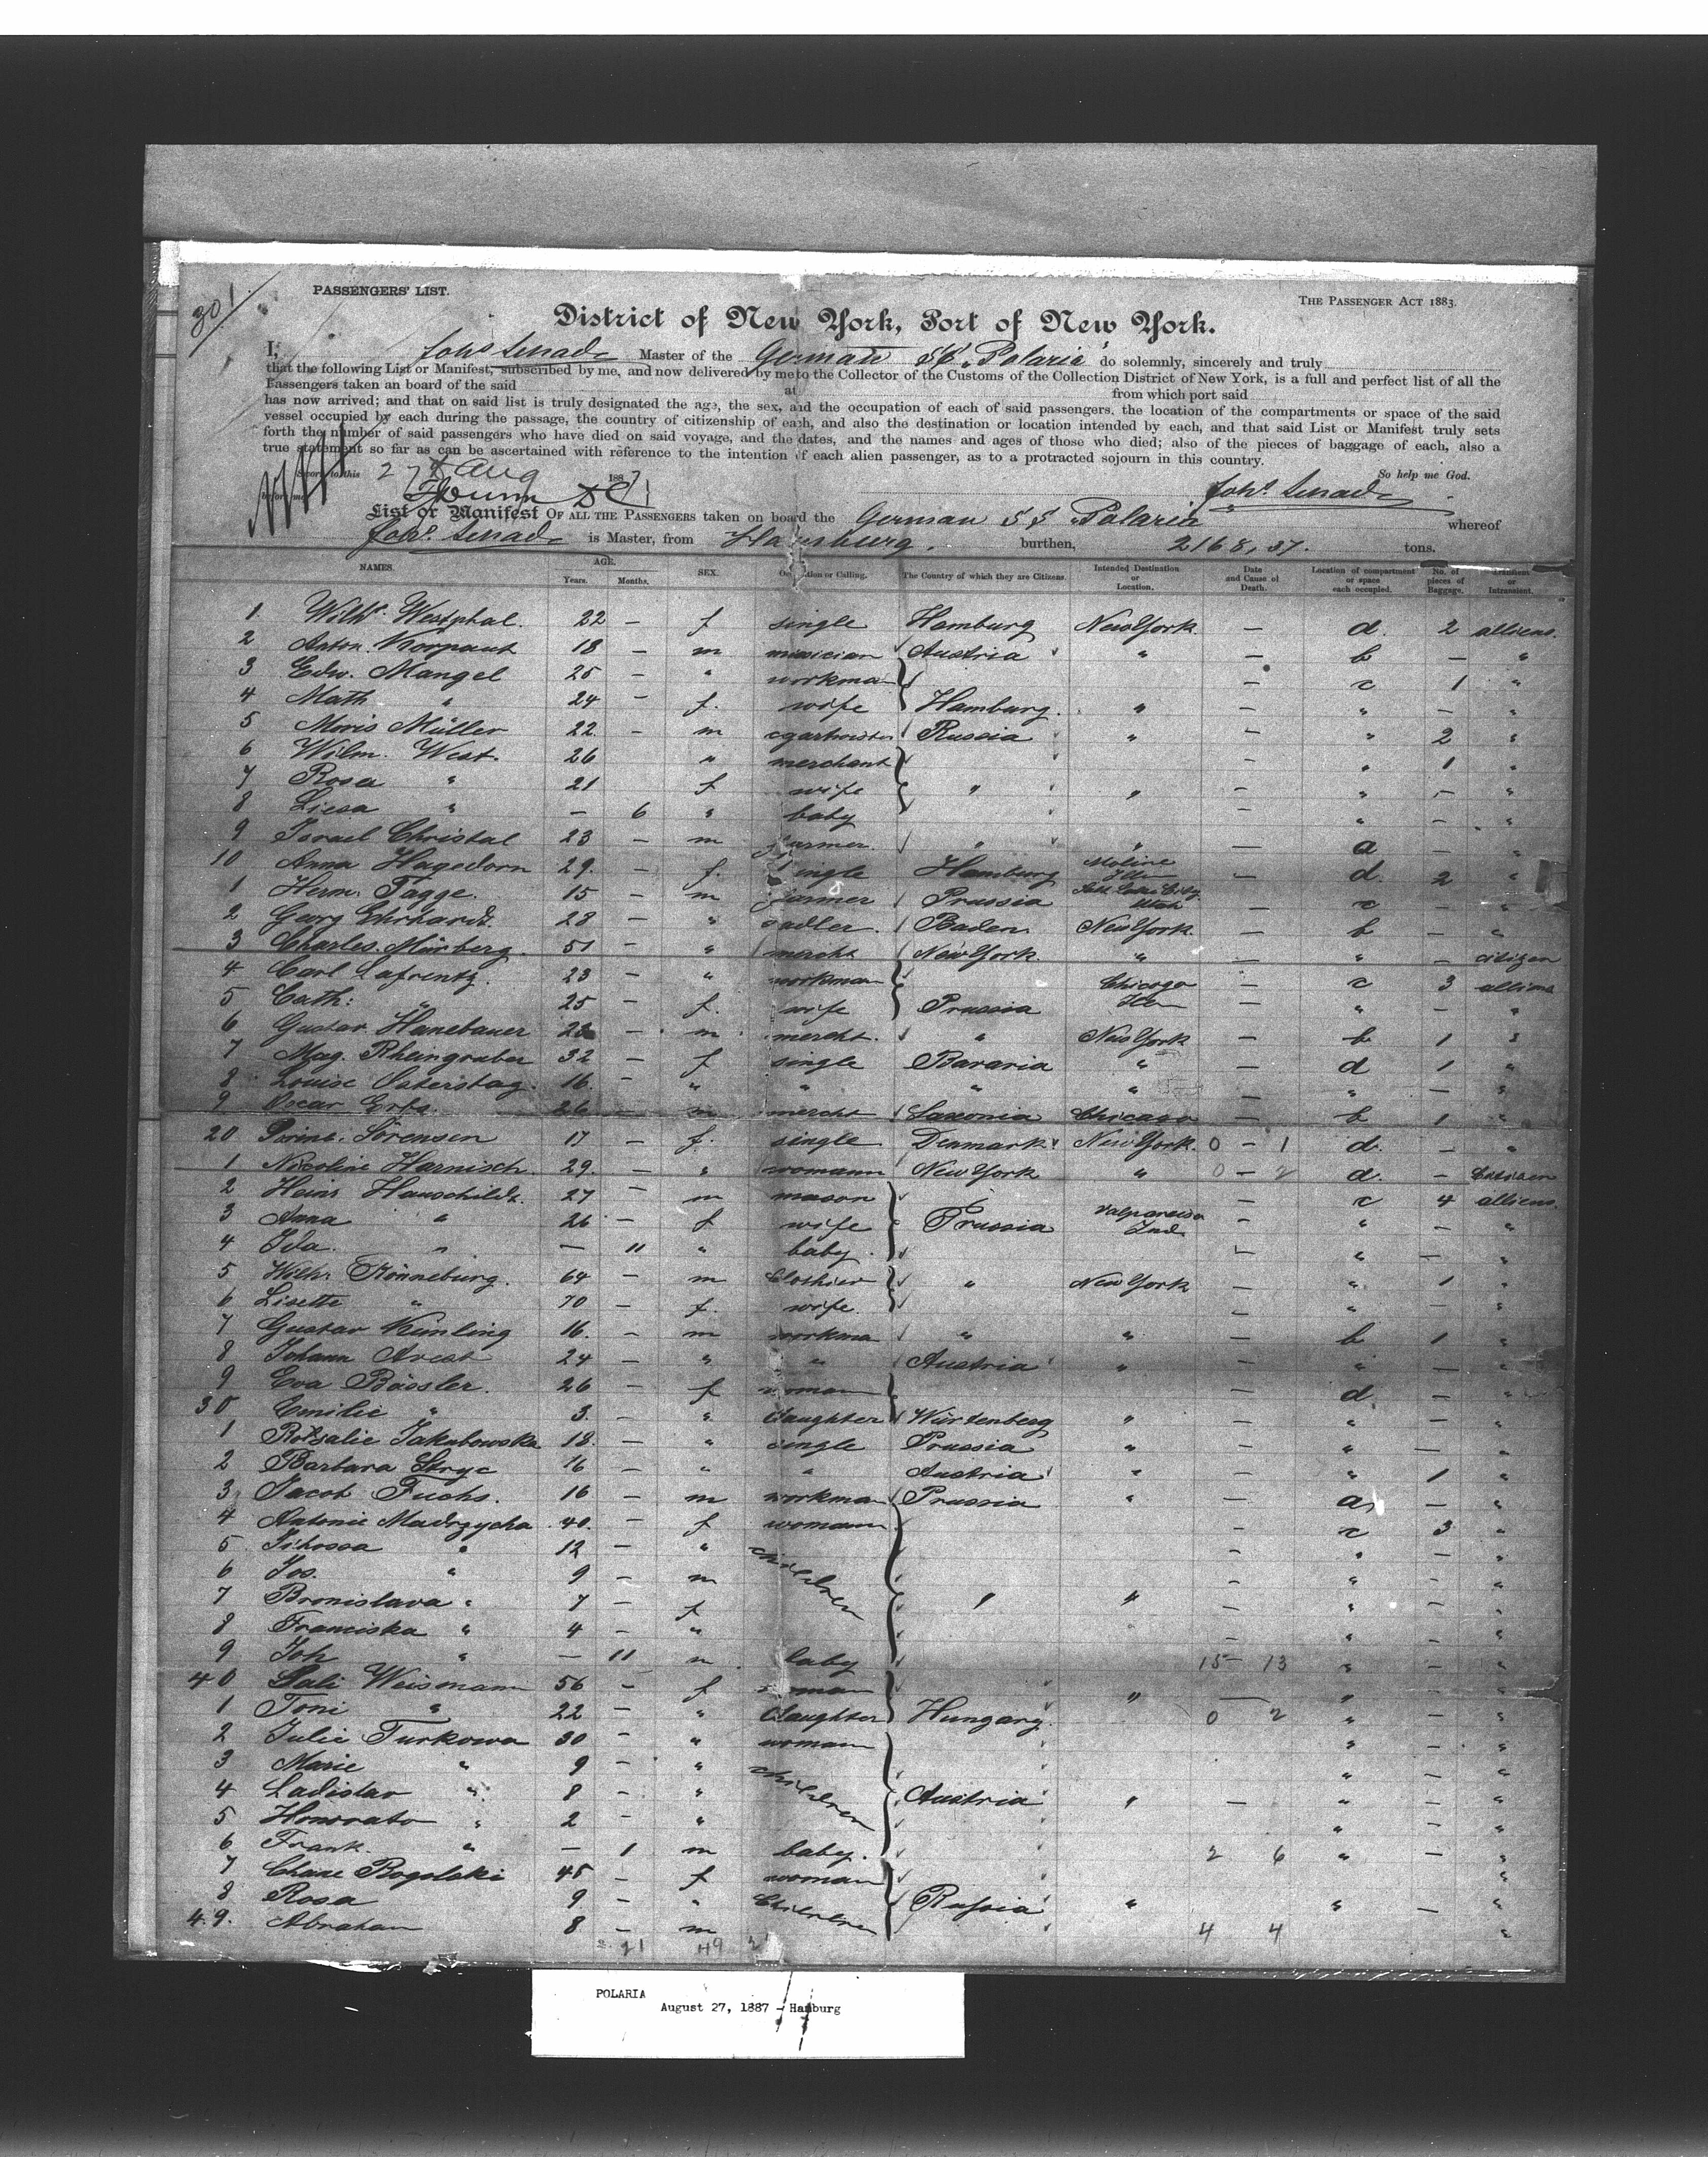 301
PASSENGERS' LIST.
THE PASSENGER ACT 1883.
District of New York, Port of New York.
I, Master of the German SS "Polaria" do solemnly, sincerely and truly
that the following List or Manifest, subscribed by me, and now delivered by me to the Collector of the Customs of the Collection District of New York, is a full and perfect list of all the
Passengers taken on board of the said at from which port said
has now arrived; and that on said list is truly designated the age, the sex, and the occupation of each of said passengers, the location of the compartments or space of the said
vessel occupied by each during the passage, the country of citizenship of each, and also the destination or location intended by each, and that said List or Manifest truly sets
forth the number of said passengers who have died on said voyage, and the dates, and the names and ages of those who died; also of the pieces of baggage of each, also a
true statement so far as can be ascertained with reference to the intention of each alien passenger, as to a protracted sojourn in this country.
Sworn to this 27th Aug 1887 So help me God.
before me
List or Manifest OF ALL THE PASSENGERS taken on board the German SS "Polaria" whereof
is Master, from Hamburg, burthen, 2168,37. tons.
NAMES. AGE. Years. Months. SEX. Occupation or Calling. The Country of which they are Citizens. Intended Destination or Location. Date and Cause of Death. Location of compartment or space each occupied. No. of pieces of Baggage. Transient or Intransient.
1 Wilhe. Westphal. 22 — f single Hamburg New York — d. 2 alliens.
2 Anton Korpaut 18 — m musician Austria " — b — "
3 Edw. Mangel 25 — " workman — c 1 "
4 Math " 24 — f. wife Hamburg. " — " — "
5 Moris Müller 22 — m Russia " — " 2 "
6 Wilm. West. 26 " merchant — " 1 "
7 Rosa " 21 f wife " " — " — "
8 Liesa " — 6 " baby — " — "
9 Israel Christal 23 — m farmer " " — a — "
10 Anna Hagedorn 29. — f. single Hamburg Moline Ill — d. 2 "
1 Herm. Tagge. 15 — m farmer Prussia Salt Lake City Utah — c — "
2 Georg Ehrhardt. 28 — " sadler. Baden New York — b — "
3 Charles Mürberg. 51 — " mercht New York " — " — citizen
4 Carl Lafrentz. 23 — " workman Chicago — c 3 alliens
5 Cath: " 25 — f. wife Prussia Ill — " — "
6 Gustav Hanebauer 23 — m mercht. " New York — b 1 "
7 Mag. Rheingruber 32 — f single Bavaria " — d 1 "
8 Louise Osterstag. 16. — " " " " — " — "
9 Oscar Erbs. 26 — m mercht Saxonia Chicago — b 1 "
20 Sörensen 17 — f. single Denmark New York. 0 - 1 d. — "
1 Nicoline Harnisch. 29. — " womann New York " 0 - 2 d. — Citizen
2 Heinr Hauschildt. 27 — m mason — c 4 alliens.
3 Anna " 26 — f wife Prussia Valparaiso Ind. — " — "
4 Ida. " — 11 " baby. — " — "
5 Wilh. Rönneburg. 64 — m Clothier " New York — " 1 "
6 Lisette " 70 — f. wife. — " — "
7 Gustav Künling 16. — m workman " " — b 1 "
8 Johann Arest 24 — " " Austria " — " — "
9 Eva Bässler. 26 — f woman — d — "
30 Emilie " 3. — " daughter Würtenberg " — " — "
1 Rosalie Jakubowska 18. — " single Prussia " — " — "
2 Barbara Stryc 16 — " " Austria " — " 1 "
3 Jacob Fuchs. 16 — m workman Prussia " — a — "
4 Antonie Madrzycha 40. — f womann — c 3 "
5 " 12 — " children — " — "
6 Jos. " 9 — m — " — "
7 Bronislava " 7 — f " " — " — "
8 Franciska " 4 — " — " — "
9 Joh " — 11 m baby 15 - 13 " — "
40 Sali Weismann 56 — f woman " — " — "
1 Toni " 22 — " daughter Hungary. 0 2 " — "
2 Julie Turkowa 30 — " womann " — "
3 Marie " 9 — " children " — "
4 Ladislav " 8 — " Austria " — " — "
5 Honorato " 2 — " " — "
6 Frank. " — 1 m baby. 2 6 " — "
7 Chane Bogolski 45 — f woman "
8 Rosa 9 — " Children Russia " " — "
49. Abraham 8 — m 4 4 "
21 49
POLARIA
August 27, 1887 - Hamburg